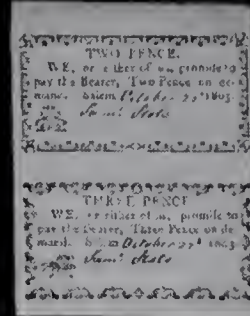 TWO PENCE.
WE, or either of us, promise to
pay the Bearer, Two Pence on de-
mand. Salem October 22d 1805.
THREE PENCE
WE, or either of us, promise to
pay the Bearer, Three Pence on de-
mand. Salem October 22d
Saml